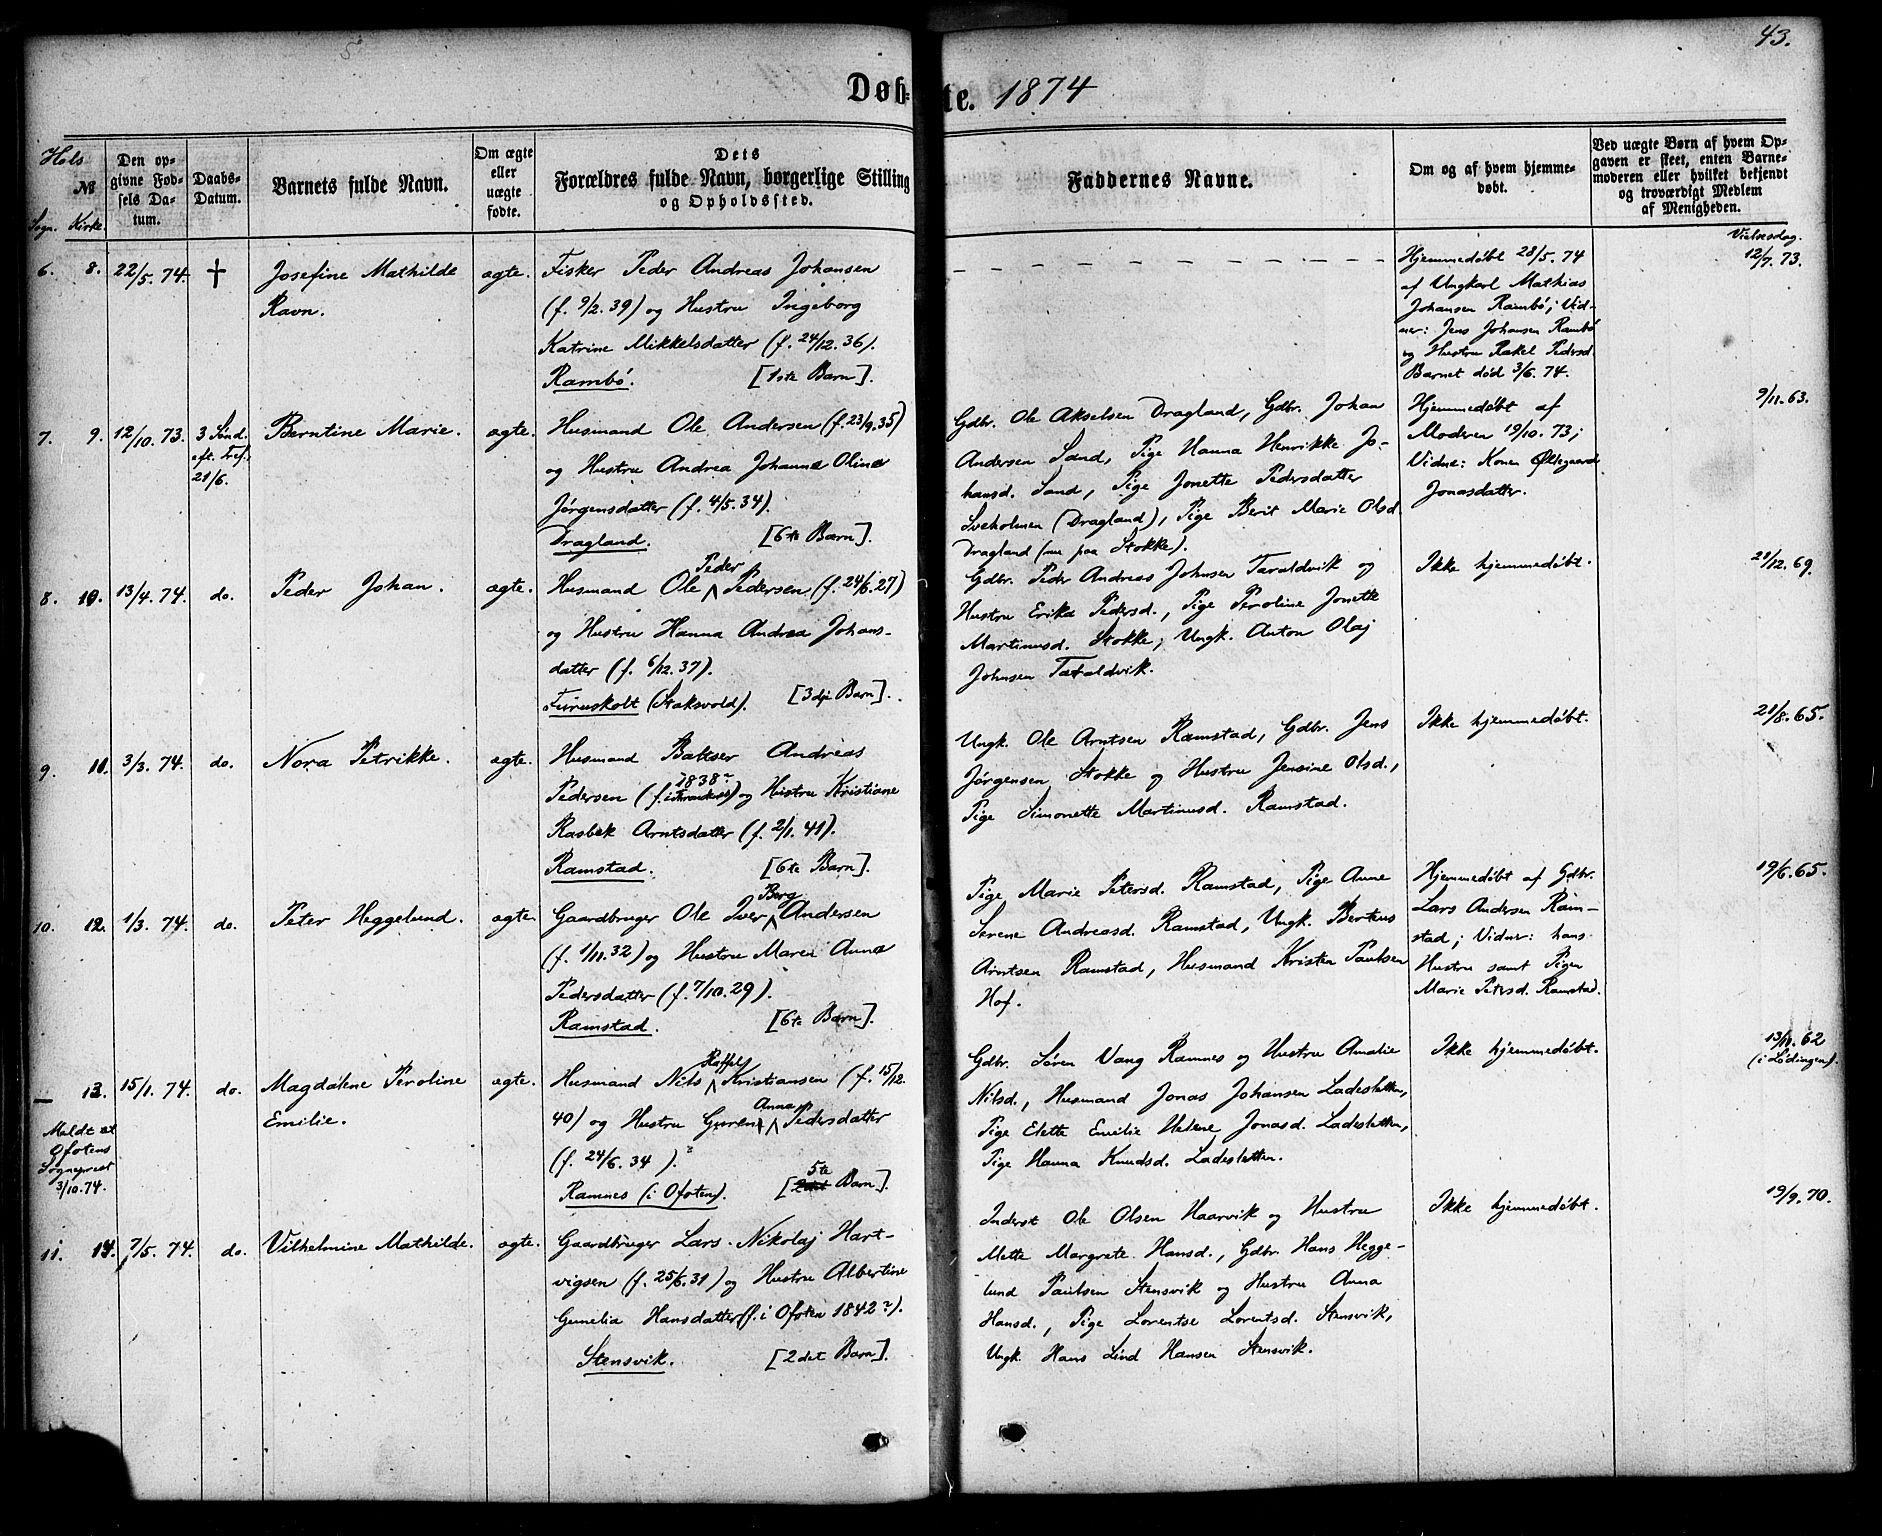 43.
Døbte. 1874
Hels
№
Sogn. Kirke.
Den opgivne Fødsels Datum.
Daabs-Datum.
Barnets fulde Navn.
Om ægte eller uægte fødte.
Dets Forældres fulde Navn, borgerlige Stilling og Opholdssted.
Faddernes Navne.
Om og af hvem hjemmedøbt.
Ved uægte Børn af hvem Opgaven er skeet, enten Barnemoderen eller hvilket bekjendt og troværdigt Medlem af Menigheden.
Vielsesdag.
6. 8. 22/5. 74. † Josefine Mathilde
Ravn.
ægte.
Fisker Peder Andreas Johansen
(f. 9/2. 39) og Hustru Ingeborg
Katrine Mikkelsdatter (f. 24/12. 36).
Rambö. [1ste Barn].
Hjemmedøbt 28/5. 74
af Ungkarl Mathias
Johansen Rambö; Vid-
ner: Jens Johansen Rambö
og Hustru Rakel Pedersd.
Barnet død 3/6. 74.
12/7. 73.
7. 9. 12/10. 73. 3 Sønd.
eft. Tref.
21/6.
Berntine Marie.
ægte.
Husmand Ole Andersen (f. 23/9. 35)
og Hustru Andrea Johanna Olina
Jørgensdatter (f. 4/5. 34).
Dragland. [6te Barn].
Gdbr. Ole Akselsen Dragland, Gdbr. Johan
Andersen Sand, Pige Hanna Henrikke Jo-
hansd. Sand, Pige Jonette Pedersdatter
Sveholmen (Dragland), Pige Berit Marie Olsd.
Dragland (nu paa Stokke).
Hjemmedøbt af
Moderen 19/10. 73;
Vidne: Konen Øllegaard
Jonasdatter.
9/11. 63.
8. 10. 13/4. 74. do. Peder Johan.
ægte.
Husmand Ole Peder Pedersen (f. 24/6. 27)
og Hustru Hanna Andrea Johans-
datter (f. 6/12. 37).
Furuskolt (Staksvold). [3die Barn].
Gdbr. Peder Andreas Johnsen Taraldvik og
Hustru Erika Pedersd., Pige Peroline Jonette
Martinusd. Stokke, Ungk. Anton Olaj
Johnsen Taraldvik.
Ikke hjemmedøbt.
21/12. 69.
9. 11. 3/3. 74. do. Nora Petrikke.
ægte.
Husmand Baltser Andreas
Pedersen (f. i Trondenes 1838?) og Hustru Kristiane
Rasbek Arntsdatter (f. 2/1. 41).
Ramstad. [6te Barn].
Ungk. Ole Arntsen Ramstad, Gdbr. Jens
Jørgensen Stokke og Hustru Jensine Olsd.,
Pige Simonette Martinusd. Ramstad.
Ikke hjemmedøbt.
21/8. 65.
10. 12. 1/3. 74. do. Peter Heggelund.
ægte.
Gaardbruger Ole Iver Berg Andersen
(f. 1/11. 32) og Hustru Maren Anna
Pedersdatter (f. 7/10. 29).
Ramstad. [6te Barn].
Pige Marie Petersd. Ramstad, Pige Anne
Serene Andreasd. Ramstad, Ungk. Berteus
Arntsen Ramstad, Husmand Kristen Paulsen
Hof.
Hjemmedøbt af Gdbr.
Lars Andersen Ram-
stad; Vidner: hans
Hustru samt Pigen
Marie Petersd. Ramstad.
19/6. 65.
— 13. 15/1. 74. do. Magdalene Peroline
Emilie.
Meldt at
Ofotens
Sogneprest
3/10. 74.
ægte.
Husmand Nils Haffel Kristiansen (f. 15/12.
40) og Hustru Guren Anna Pedersdatter
(f. 24/6. 34 ).?
Ramnes (i Ofoten). [5te Barn].
Gdbr. Søren Vang Ramnes og Hustru Amalie
Nilsd., Husmand Jonas Johansen Ladesletten,
Pige Elette Emilie Helene Jonasd. Ladesletten,
Pige Hanna Knudsd. Ladesletten.
Ikke hjemmedøbt.
13/11. 62
(i Lødingen).
11. 14. 7/5. 74. do. Vilhelmine Mathilde.
ægte.
Gaardbruger Lars Nikolaj Hart-
vigsen (f. 25/6. 31) og Hustru Albertine
Gumelia Hansdatter (f. i Ofoten 1842?).
Stensvik. [2det Barn].
Inderst Ole Olsen Haarvik og Hustru
Mette Margrete Hansd., Gdbr. Hans Hegge-
lund Paulsen Stensvik og Hustru Anna
Hansd., Pige Lorentse Lorentsd. Stensvik,
Ungk. Hans Lind Hansen Stensvik.
Ikke hjemmedøbt.
19/9. 70.